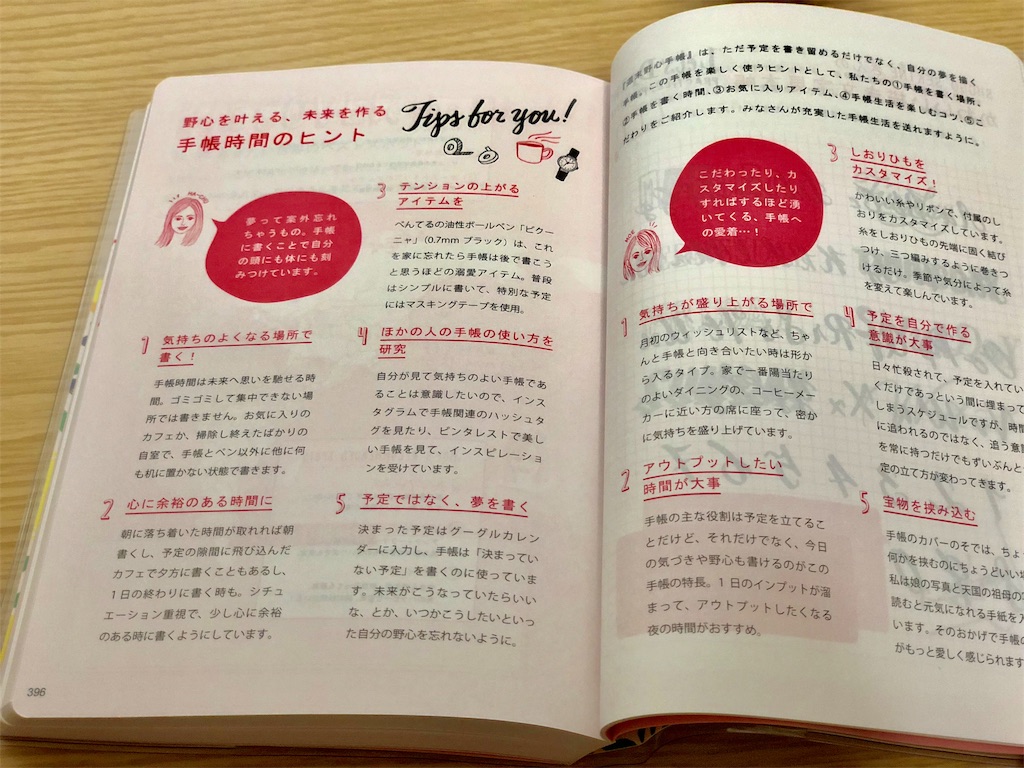 野心を叶える、未来を作る
手帳時間のヒント
Tips for you!
HA-CHU
夢って案外忘れ
ちゃうもの。手帳
に書くことで自分
の頭にも体にも刻
みつけています。
1 気持ちのよくなる場所で
書く！
手帳時間は未来へ思いを馳せる時
間。ゴミゴミして集中できない場
所では書きません。お気に入りの
カフェか、掃除し終えたばかりの
自室で、手帳とペン以外に他に何
も机に置かない状態で書きます。
2 心に余裕のある時間に
朝に落ち着いた時間が取れれば朝
書くし、予定の隙間に飛び込んだ
カフェで夕方に書くこともあるし、
1日の終わりに書く時も。シチュ
エーション重視で、少し心に余裕
のある時に書くようにしています。
3 テンションの上がる
アイテムを
ぺんてるの油性ボールペン「ビクー
ニャ」（0.7mm ブラック）は、これ
を家に忘れたら手帳は後で書こう
と思うほどの溺愛アイテム。普段
はシンプルに書いて、特別な予定
にはマスキングテープを使用。
4 ほかの人の手帳の使い方を
研究
自分が見て気持ちのよい手帳であ
ることは意識したいので、インス
タグラムで手帳関連のハッシュタ
グを見たり、ピンタレストで美し
い手帳を見て、インスピレーショ
ンを受けています。
5 予定ではなく、夢を書く
決まった予定はグーグルカレン
ダーに入力し、手帳は「決まってい
ない予定」を書くのに使っていま
す。未来がこうなっていたらいい
な、とか、いつかこうしたいといっ
た自分の野心を忘れないように。
396
『週末野心手帳』は、ただ予定を書き留めるだけでなく、自分の夢を描く
手帳。この手帳を楽しく使うヒントとして、私たちの①手帳を書く場所。
②手帳を書く時間、③お気に入りアイテム、④手帳生活を楽しむコツ、⑤こ
だわりをご紹介します。みなさんが充実した手帳生活を送れますように。
こだわったり、カ
スタマイズしたり
すればするほど湧
いてくる、手帳へ
の愛着…！
1 気持ちが盛り上がる場所で
月初のウィッシュリストなど、ちゃ
んと手帳と向き合いたい時は形か
ら入るタイプ。家で一番陽当たり
のよいダイニングの、コーヒーメー
カーに近い方の席に座って、密か
に気持ちを盛り上げています。
2 アウトプットしたい
時間が大事
手帳の主な役割は予定を立てるこ
とだけど、それだけでなく、今日
の気づきや野心も書けるのがこの
手帳の特長。1日のインプットが溜
まって、アウトプットしたくなる
夜の時間がおすすめ。
3 しおりひもを
カスタマイズ！
かわいい糸やリボンで、付属のし
おりをカスタマイズしています。
糸をしおりひもの先端に固く結び
つけ、三つ編みするように巻きつ
けるだけ。季節や気分によって糸
を変えて楽しんでいます。
4 予定を自分で作る
意識が大事
日々忙殺されて、予定を入れてい
くだけであっという間に埋まって
しまうスケジュールですが、時間
に追われるのではなく、追う意識
を常に持つだけでもずいぶんと
定の立て方が変わってきます。
5 宝物を挟み込む
手帳のカバーのそでは、ちょ
何かを挟むのにちょうどいい場
私は娘の写真と天国の祖母の
読むと元気になれる手紙を入
います。そのおかげで手帳の
がもっと愛しく感じられます